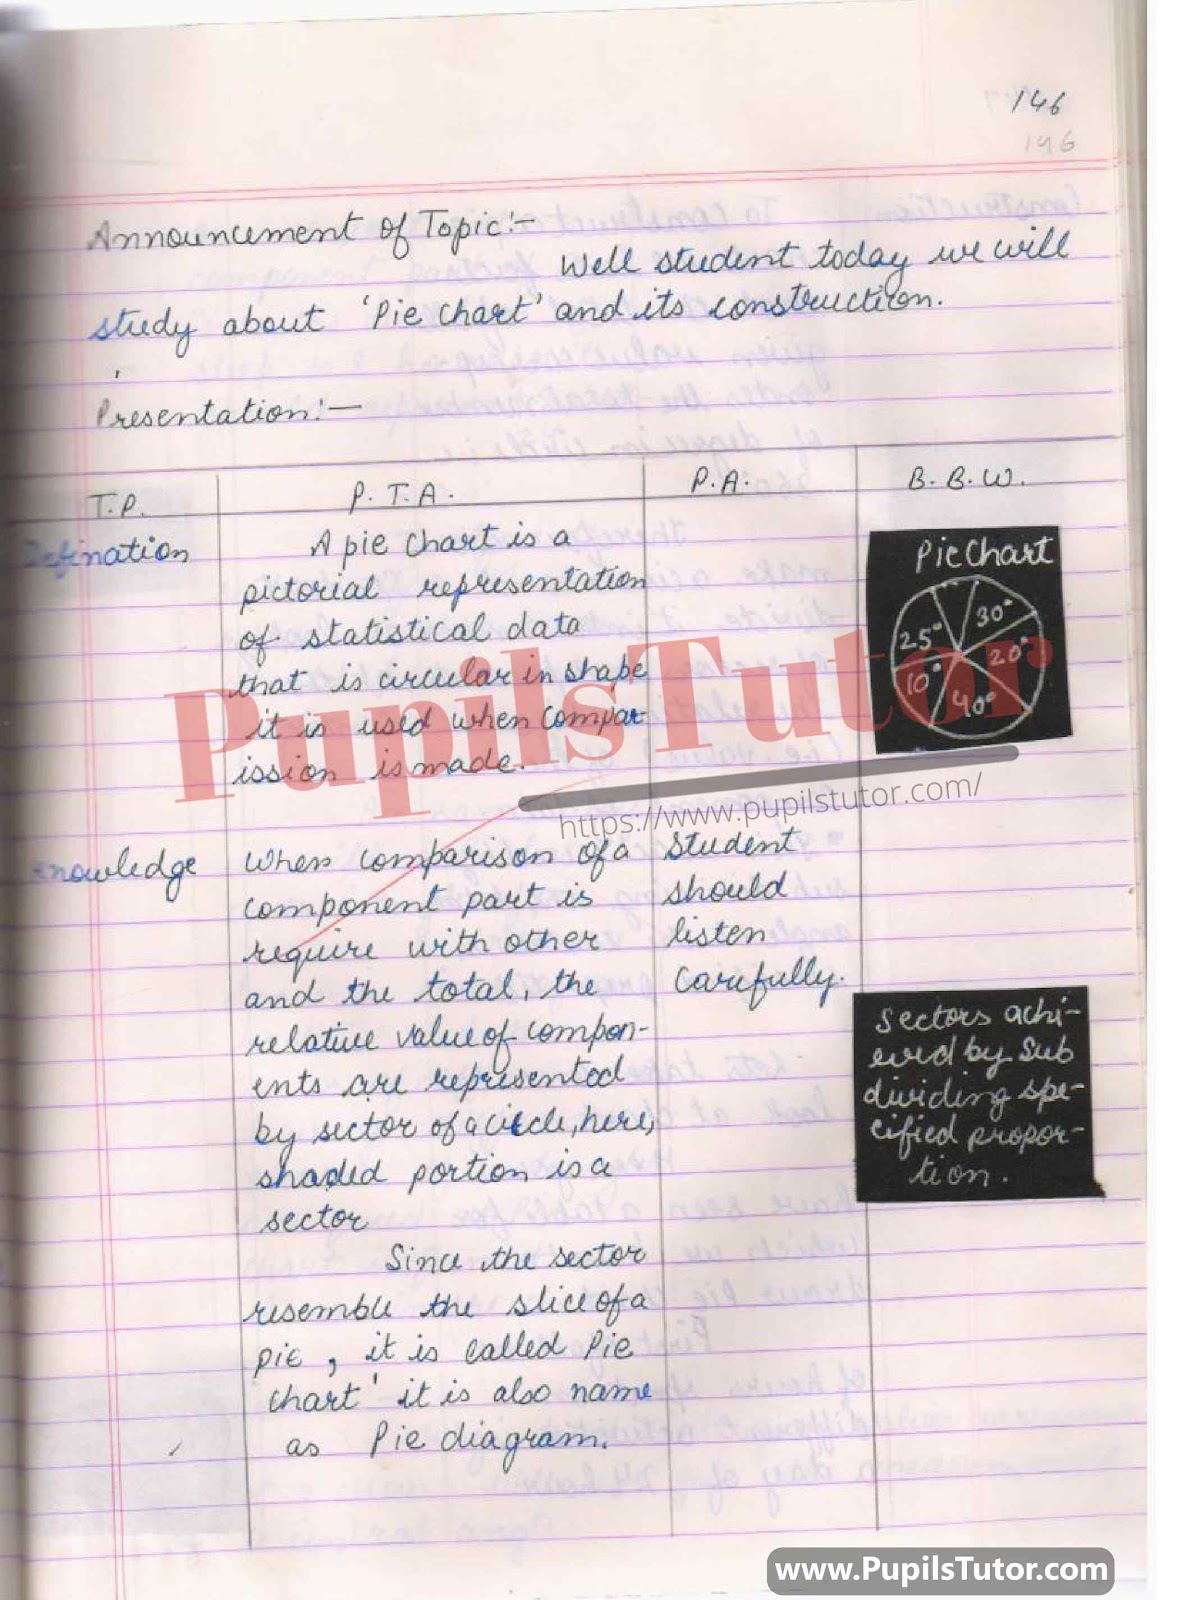 146
146
Announcement of Topic:-
Well student today we will
study about 'Pie chart' and its construction.
Presentation:-
T.P.
P. T. A.
P.A.
B. B. W.
Defination
A pie chart is a
pictorial representation
of statistical data
that is circular in shape
it is used when compar-
ission is made.
Pie Chart
30°
25°
20°
10°
40°
PupilsTutor
https://www.pupilstutor.com/
Knowledge
When comparison of a
component part is
require with other
and the total, the
relative value of compon-
ents are represented
by sector of a circle, here,
shaded portion is a
sector
Since the sector
resemble the slice of a
pie, it is called Pie
chart' it is also name
as Pie diagram.
student
should
listen
carefully.
Sectors achi-
eved by sub
dividing spe-
cified propor-
tion.
www.PupilsTutor.com